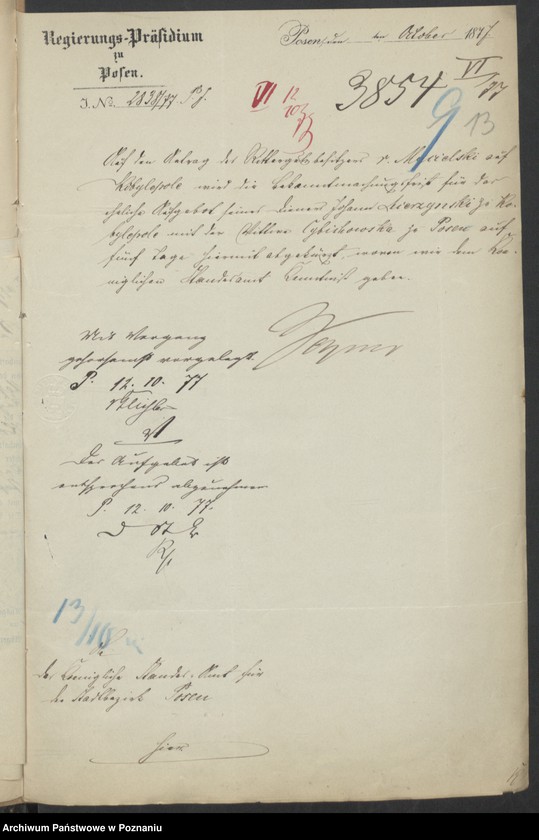 Regierungs-Präsidium
zu
Posen.
J. No. 2838/77 P.J.
Posen, den October 1877
VI 12/10 77
3854 VI/77
9
13
Auf den Antrag des Rittergutsbesitzers v. Mycielski auf
Kobylepole wird die Bekanntmachungsfrist für das
eheliche Aufgebot seines Dieners Johann zu Ko-
bylepole mit der Wittwe Cybichowska zu Posen auf
fünf Tage hiermit abgekürzt, wovon wir dem Kö-
niglichen Standesamt Kenntniß geben.
Mit Vorgang
gehorsamst vorgelegt.
P. 12. 10. 77
Das Aufgebot ist
entsprechend abzunehmen
P. 12. 10. 77.
D St B
13/10
An
das Königliche Standes-Amt für
den Stadtbezirk Posen
hier
Archiwum Państwowe w Poznaniu